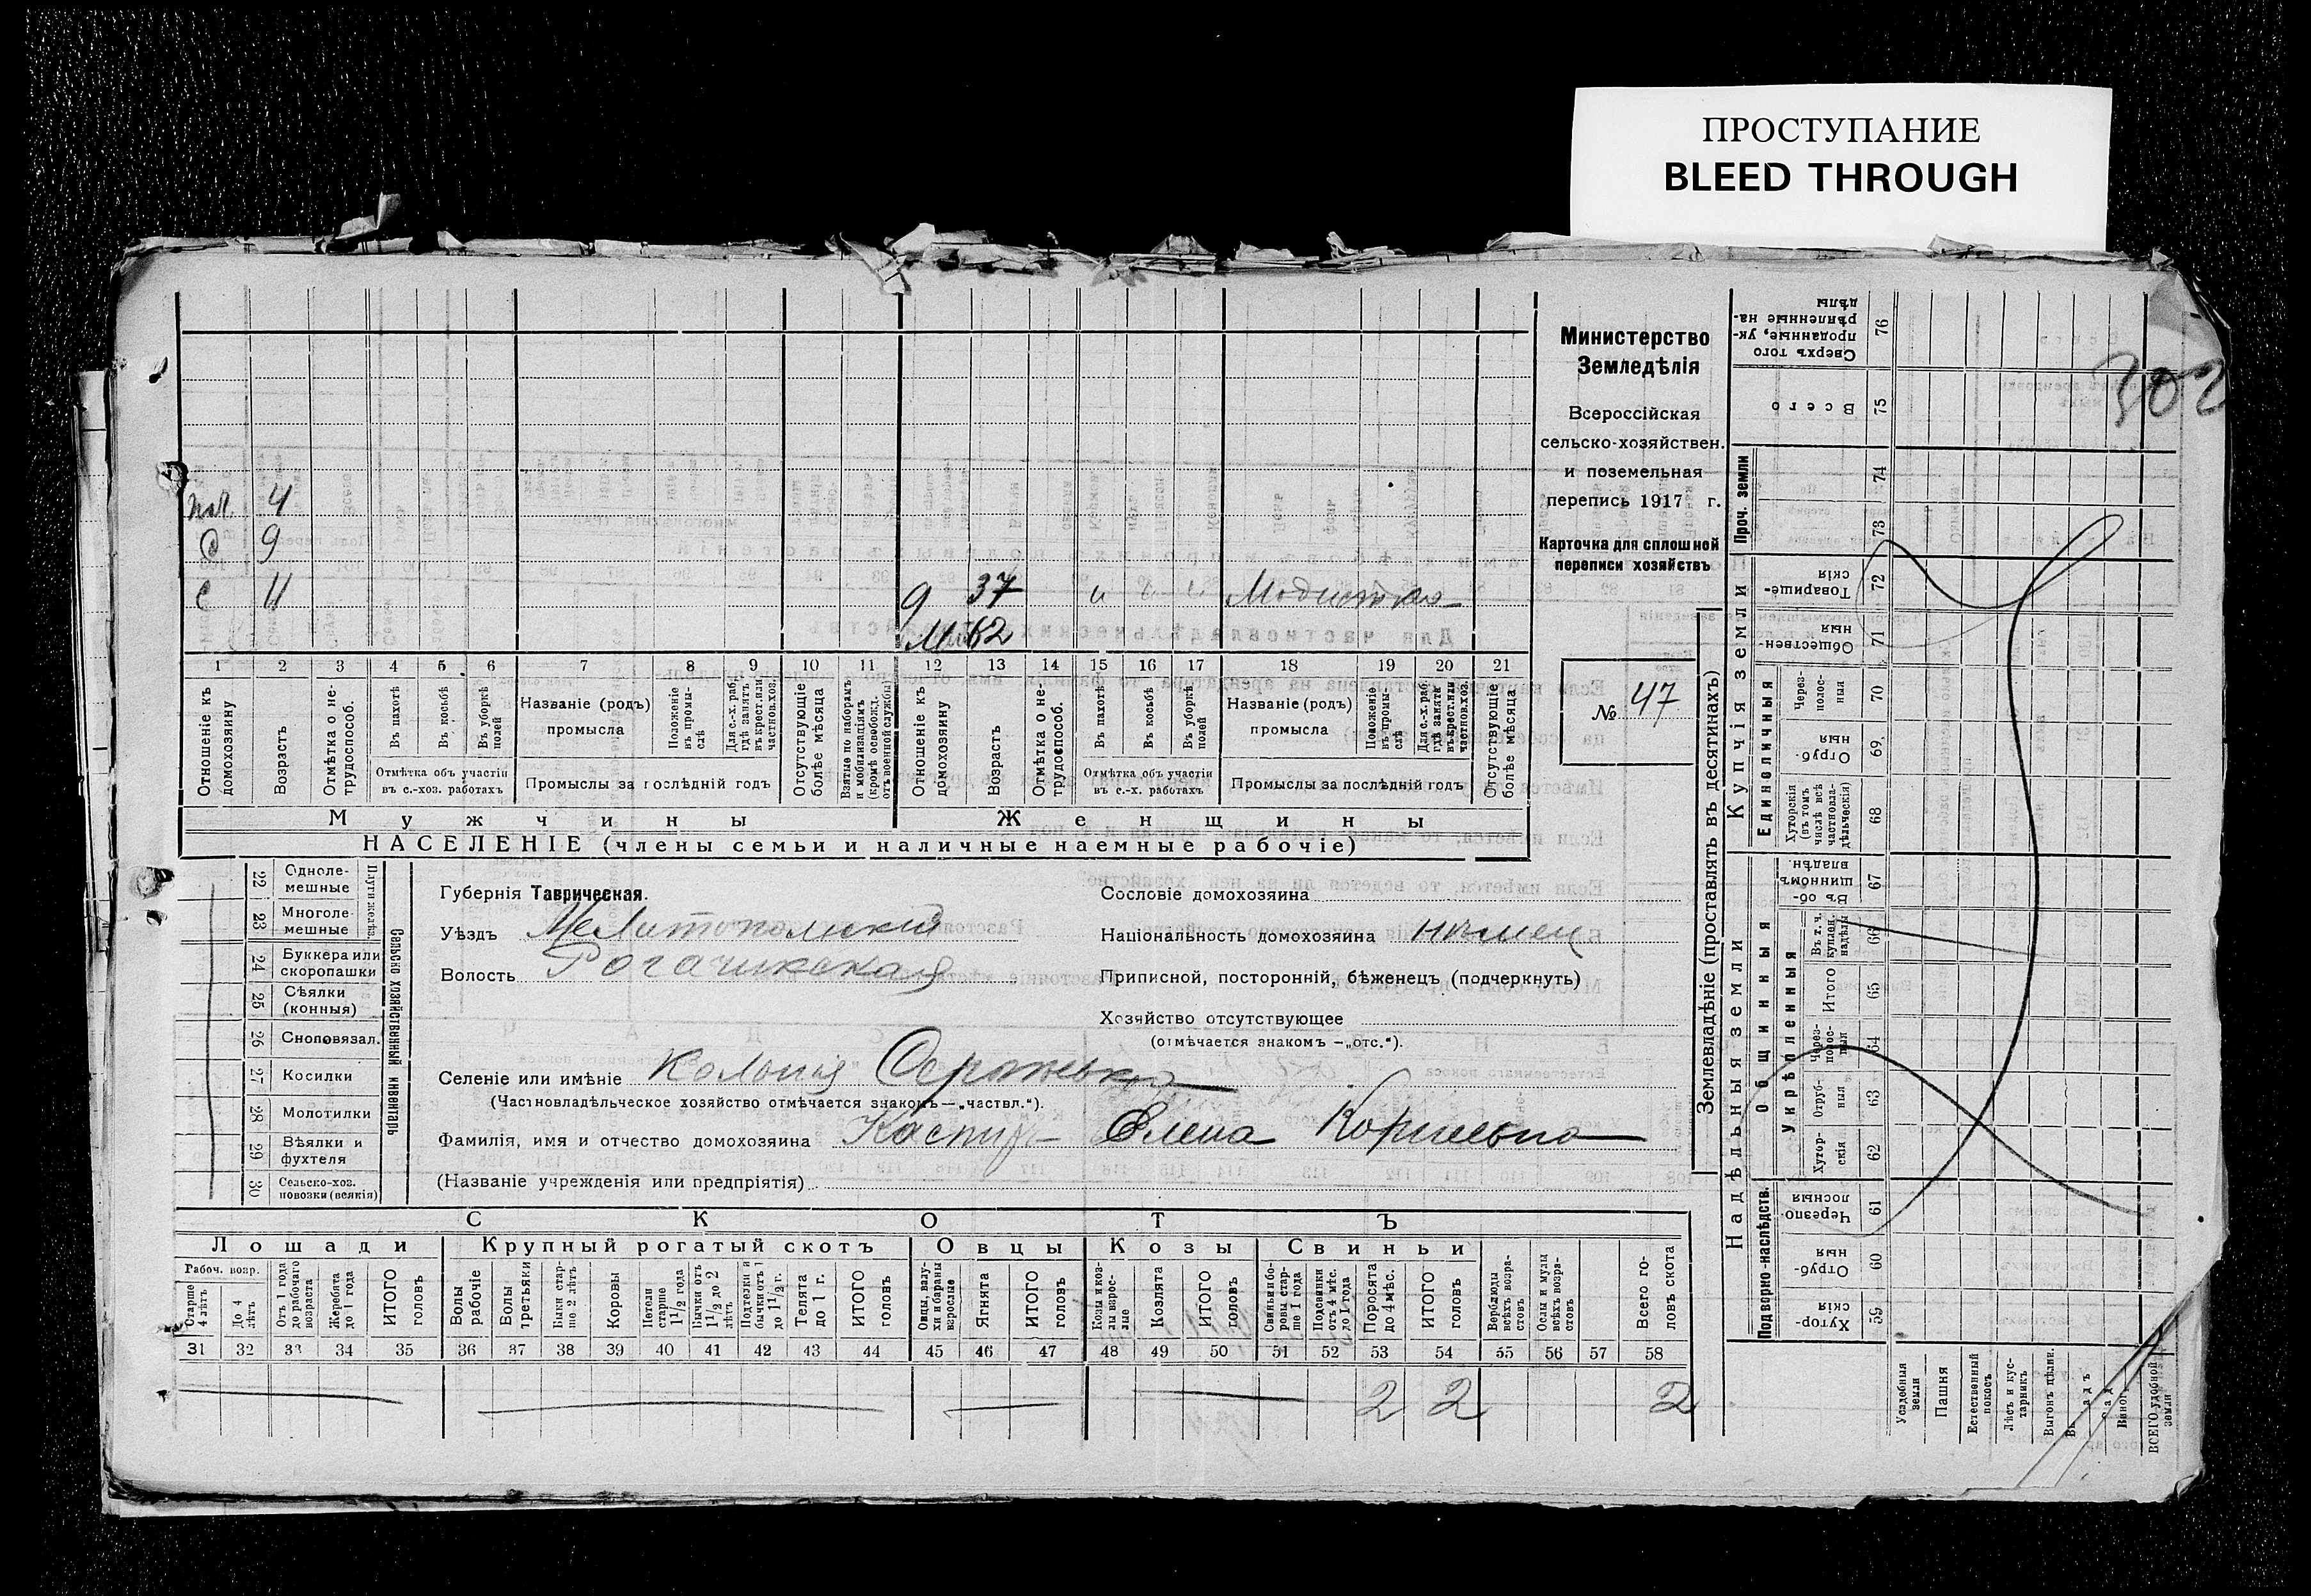 ПРОСТУПАНИЕ
BLEED THROUGH
302
Министерство
Земледѣлія
Всероссійская
сельско-хозяйствен.
и поземельная
перепись 1917 г.
Карточка для сплошной
переписи хозяйствъ
№ 47
4
9
с 11
37 Модистка
62
1 2 3 4 5 6 7 8 9 10 11 12 13 14 15 16 17 18 19 20 21
Отношеніе къ домохозяину
Возрастъ
Отмѣтка о нетрудоспособ.
Въ пахотѣ
Въ косьбѣ
Въ уборкѣ полей
Отмѣтка объ участіи
въ с.-хоз. работахъ
Названіе (родъ)
промысла
Положеніе въ промыслѣ
Для с.-х. раб. гдѣ занятъ въ крест. или частнов. хоз.
Промыслы за послѣдній годъ
Отсутствующіе болѣе мѣсяца
Взятые по наборамъ и мобилизаціямъ (кромѣ освобожд. отъ военной службы)
Отношеніе къ домохозяину
Возрастъ
Отмѣтка о нетрудоспособ.
Въ пахотѣ
Въ косьбѣ
Въ уборкѣ полей
Отмѣтка объ участіи
въ с.-х. работахъ
Названіе (родъ)
промысла
Положеніе въ промыслѣ
Для с.-х. раб. гдѣ занята въ крест. или частнов. хоз.
Промыслы за послѣдній годъ
Отсутствующіе болѣе мѣсяца
Мужчины
Женщины
НАСЕЛЕНІЕ (члены семьи и наличные наемные рабочіе)
22 Одноле-
мешные
23 Многоле-
мешные
Плуги желѣз.
24 Буккера или
скоропашки
25 Сѣялки
(конныя)
26 Сноповязал.
27 Косилки
28 Молотилки
29 Вѣялки и
фухтеля
30 Сельско-хоз.
повозки (всякія)
Сельско хозяйственный инвентарь
Губернія Таврическая.
Уѣздъ Мелитопольскій
Волость Рогачикская
Селеніе или имѣніе Колонія
(Частновладѣльческое хозяйство отмѣчается знакомъ—„частвл.“).
Фамилія, имя и отчество домохозяина Каспиръ Елена Корнеевна
(Названіе учрежденія или предпріятія)
Сословіе домохозяина
Національность домохозяина нѣмец
Приписной, посторонній, бѣженецъ (подчеркнуть)
Хозяйство отсутствующее
(отмѣчается знакомъ —„отс.“).
СКОТЪ
Лошади
Крупный рогатый скотъ
Овцы
Козы
Свиньи
Рабоч. возр.
Старше 4 лѣтъ
До 4 лѣтъ
Отъ 1 года до рабочаго возраста
Жеребята до 1 года
ИТОГО головъ
Волы рабочіе
Волы третьяки
Быки старше 2 лѣтъ
Коровы
Нетели старше 1 1/2 года
Бычки отъ 1 1/2 до 2 лѣтъ
Подтелки и бычки отъ 1 до 1 1/2 г.
Телята до 1 г.
ИТОГО головъ
Овцы, валухи и бараны взрослые
Ягнята
ИТОГО головъ
Козы и козлы взрослые
Козлята
ИТОГО головъ
Свиньи и боровы старше 1 года
Подсвинки отъ 4 мѣс. до 1 года
Поросята до 4 мѣс.
ИТОГО головъ
Верблюды всѣхъ возрастовъ
Ослы и мулы всѣхъ возрастовъ
Всего головъ скота
31 32 33 34 35 36 37 38 39 40 41 42 43 44 45 46 47 48 49 50 51 52 53 54 55 56 57 58
2 2 2
Землевладѣніе (проставлять въ десятинахъ)
Купчія земли
Надѣльныя земли
Сверхъ того проданные, укрѣпленные надѣлы 76
Всего 75
Проч. земли 74
73
Товарищескія 72
Общественныя 71
Единоличныя
Черезполосныя 70
Отрубныя 69
Хуторскія (въ томъ числѣ всѣ частновладѣльческія) 68
Общинныя
Въ общинномъ владѣн. 67
Укрѣпленныя
Въ т. ч. куплен. надѣлы 66
Итого 65
Черезполосныя 64
Отрубныя 63
Хуторскія 62
Подворно-наслѣдств.
Черезполосныя 61
Отрубныя 60
Хуторскія 59
Усадебныя земли
Пашня
Естественный покосъ
Лѣсъ и кустарникъ
Выгонъ цѣлин.
Садъ
Виног.
ВСЕГО удобной земли